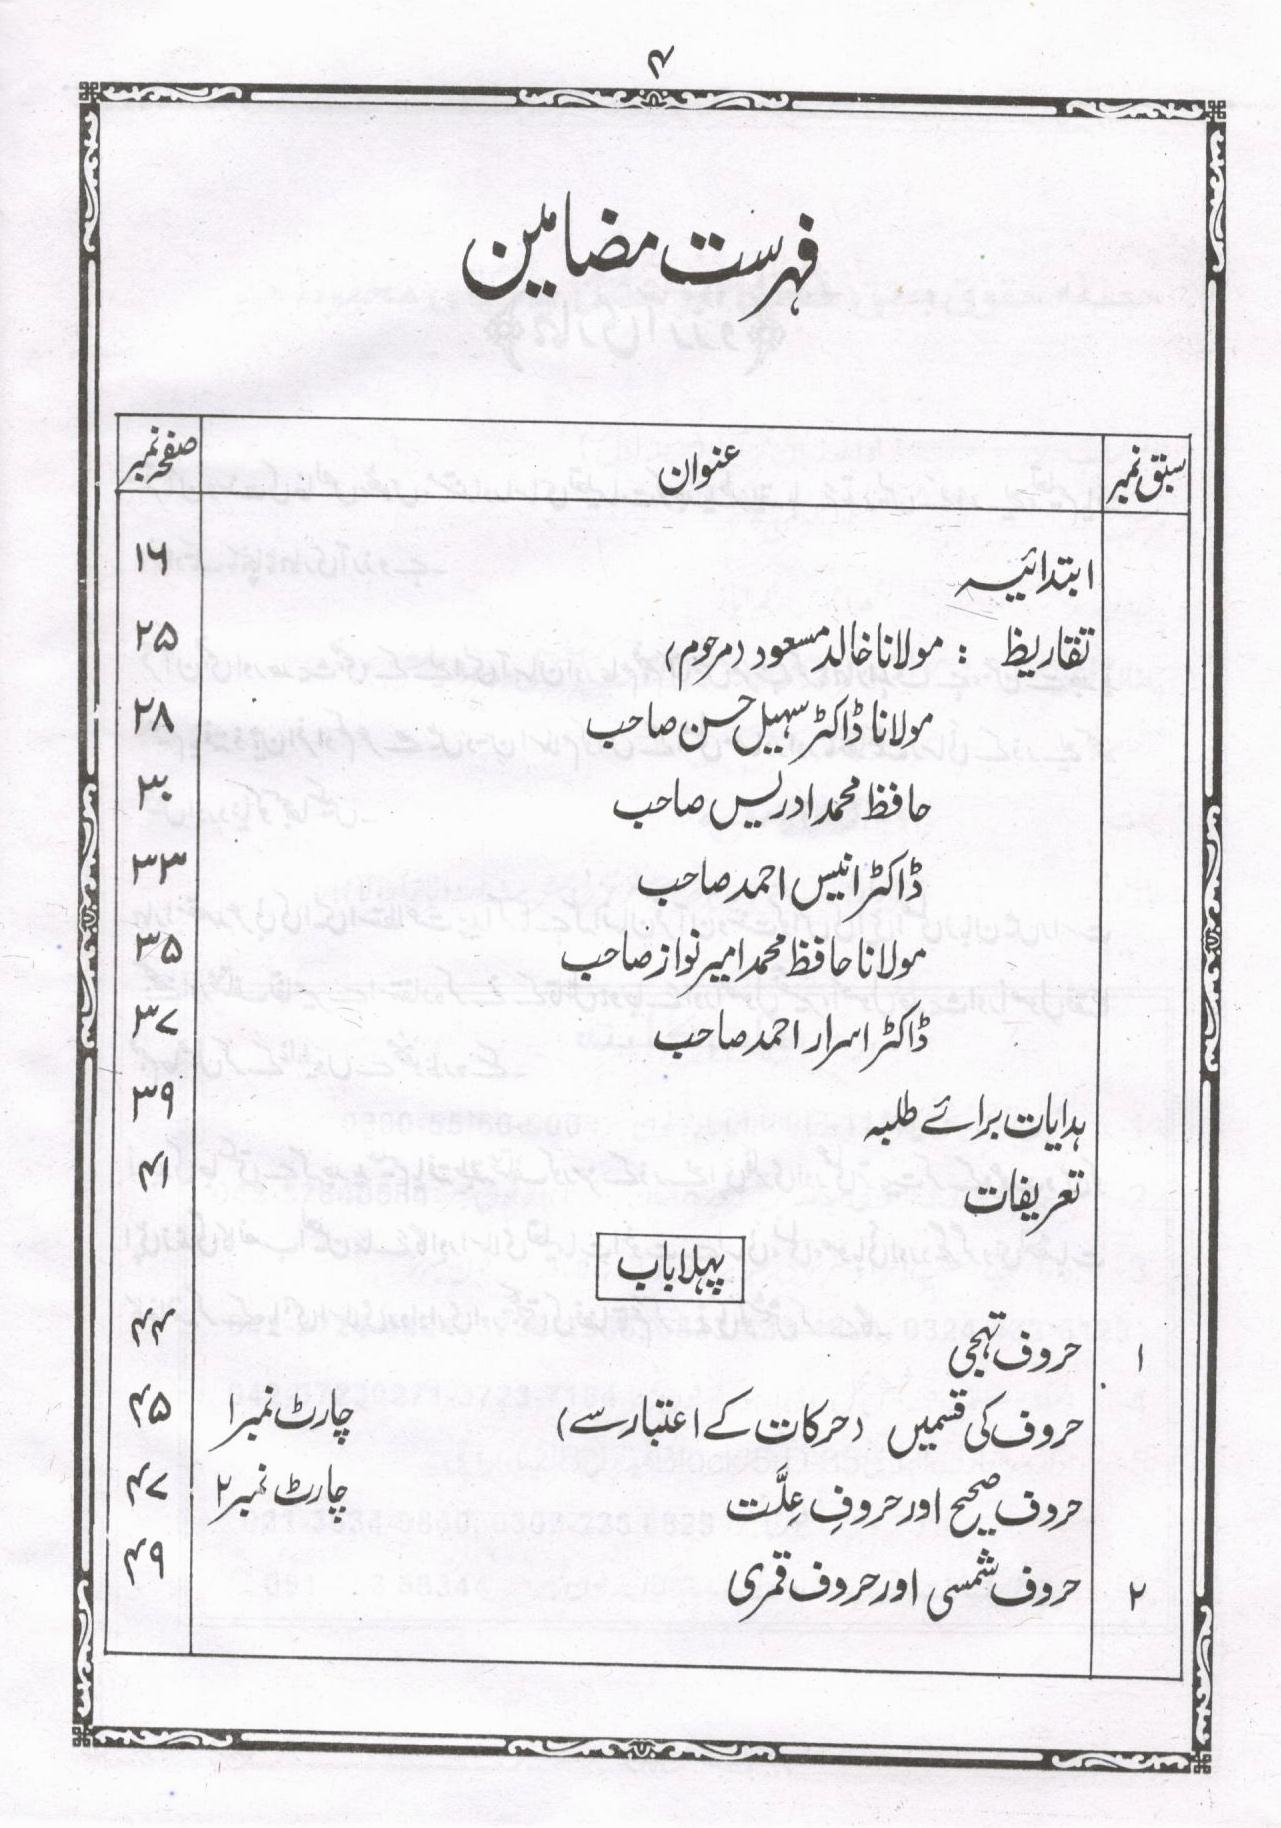 ۴
فہرست مضامین
سبق نمبر عنوان صفحہ نمبر
ابتدائیہ ۱۶
تقاریظ : مولانا خالد مسعود (مرحوم) ۲۵
مولانا ڈاکٹر سہیل حسن صاحب ۲۸
حافظ محمد ادریس صاحب ۳۰
ڈاکٹر انیس احمد صاحب ۳۳
مولانا حافظ محمد امیر نواز صاحب ۳۵
ڈاکٹر اسرار احمد صاحب ۳۷
ہدایات برائے طلبہ ۳۹
تعریفات ۴۱
پہلا باب
۱ حروف تہجی ۴۴
حروف کی قسمیں (حرکات کے اعتبار سے) چارٹ نمبر۱ ۴۵
حروف صحیح اور حروفِ عِلَّت چارٹ نمبر۲ ۴۷
۲ حروف شمسی اور حروف قمری ۴۹